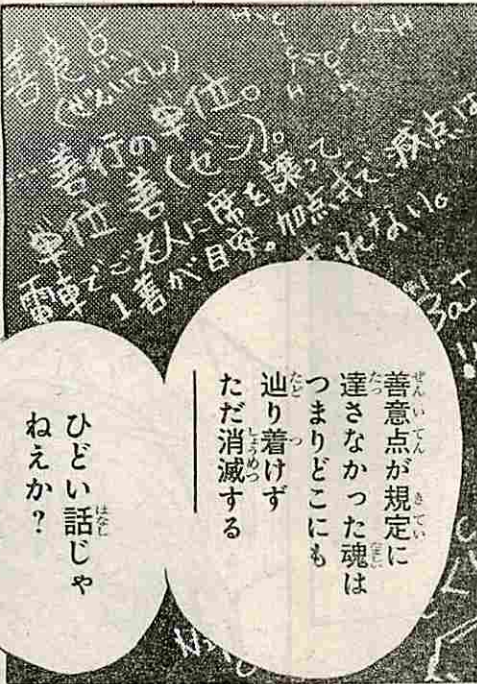 善意点
(ぜんいてん)
…善行の単位。
単位 善(ゼン)。
電車でご老人に席を譲って
1善が目安。加点式で、減点は
されない。
善意点が規定に
達さなかった魂は
つまりどこにも
辿り着けず
ただ消滅する
ひどい話じゃ
ねえか?